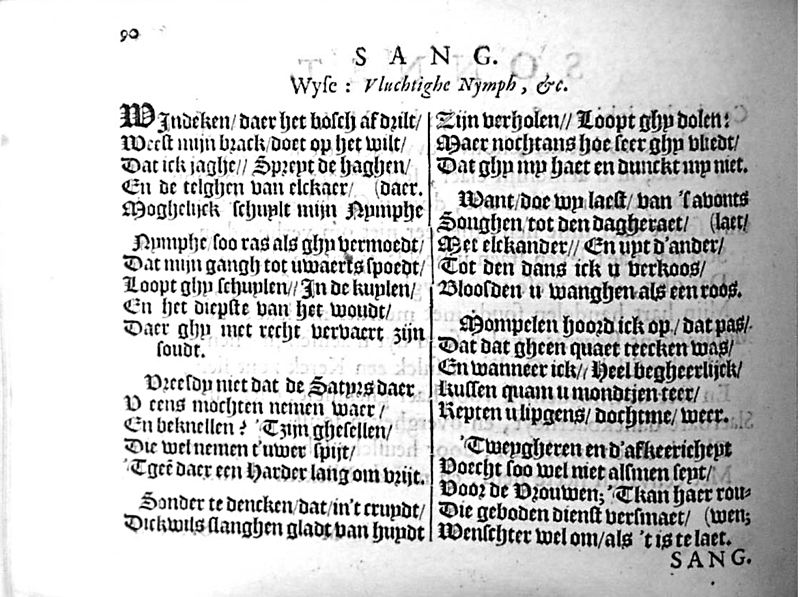 90
SANG.
Wyse: Vluchtighe Nymph, &c.
WIndeken/ daer het bosch af drilt/
Weest mijn brack/ doet op het wilt/
Dat ick jaghe// Spreyt de haghen/
En de telghen van elckaer/ (daer.
Moghelijck schuylt mijn Nymphe
Nymphe/ soo ras als ghy vermoedt/
Dat mijn gangh tot uwaerts spoedt/
Loopt ghy schuylen// In de kuylen/
En het diepste van het woudt/
Daer ghy met recht vervaert zijn
soudt.
Vreesdy niet dat de Satyrs daer
V eens mochten nemen waer/
En beknellen? 'Tzijn ghesellen/
Die wel nemen t'uwer spijt/
'Tgeē daer een Harder lang om vrijt.
Sonder te dencken/ dat/ in't cruydt/
Dickwils slanghen gladt van huydt
Zijn verholen// Loopt ghy dolen:
Maer nochtans hoe seer ghy vliedt/
Dat ghy my haet en dunckt my niet.
Want/ doe wy laest/ van 's avonts
Soughen/ tot den dagheraet/ (laet/
Met elckander// En uyt d'ander/
Tot den dans ick u verkoos/
Bloosden u wanghen als een roos.
Mompelen hoord ick op/ dat pas/
Dat dat gheen quaet teecken was/
En wanneer ick// Heel begheerlijck/
Kussen quam u mondtjen teer/
Repten u lipgens/ dochtme/ weer.
'Tweygheren en d'afkeericheyt
Voecht soo wel niet alsmen seyt/
Voor de Vrouwen; 'Tkan haer rou-
Die geboden dienst versmaet/ (wen;
Wenschter wel om/ als 't is te laet.
SANG.